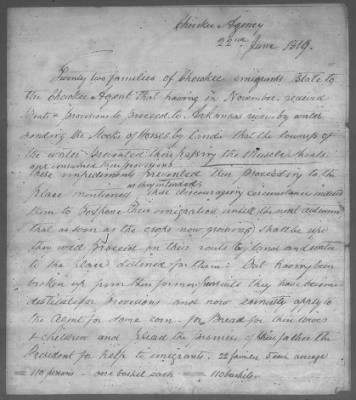 Cherokee Agency
22nd June 1819.
Twenty two families of Cherokee emigrants State to
the Cherokee Agent that having in November received
boat & provisions to proceed to Arkansas river by water
sending the stocks of horses by land: that the lowness of
the water prevented their passing the Muscle Shoals
and consumed their provisions
these impediments prevented their proceeding to the
place mentioned as they intended: these discouraging circumstances induced
them to postpone their emigration until the next autumn
that as soon as the crops now growing shall be ripe
they wod proceed on their route by land and water
to the place destined for them: But having been
broken up from their former they have become
destitute for provisions and now earnestly apply to
the Agent for some corn for Bread for their wives
& children and plead the promise of their father the
President for help to emigrants. 22 families 5 each average
110 persons - one bushel each = 110 bushels